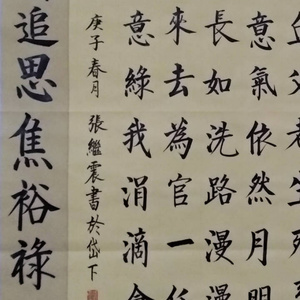 意氣依然月明
長如洗路漫漫
來去為官一任
意綠我涓滴會
庚子春月 張繼震書於岱下
追思焦裕祿